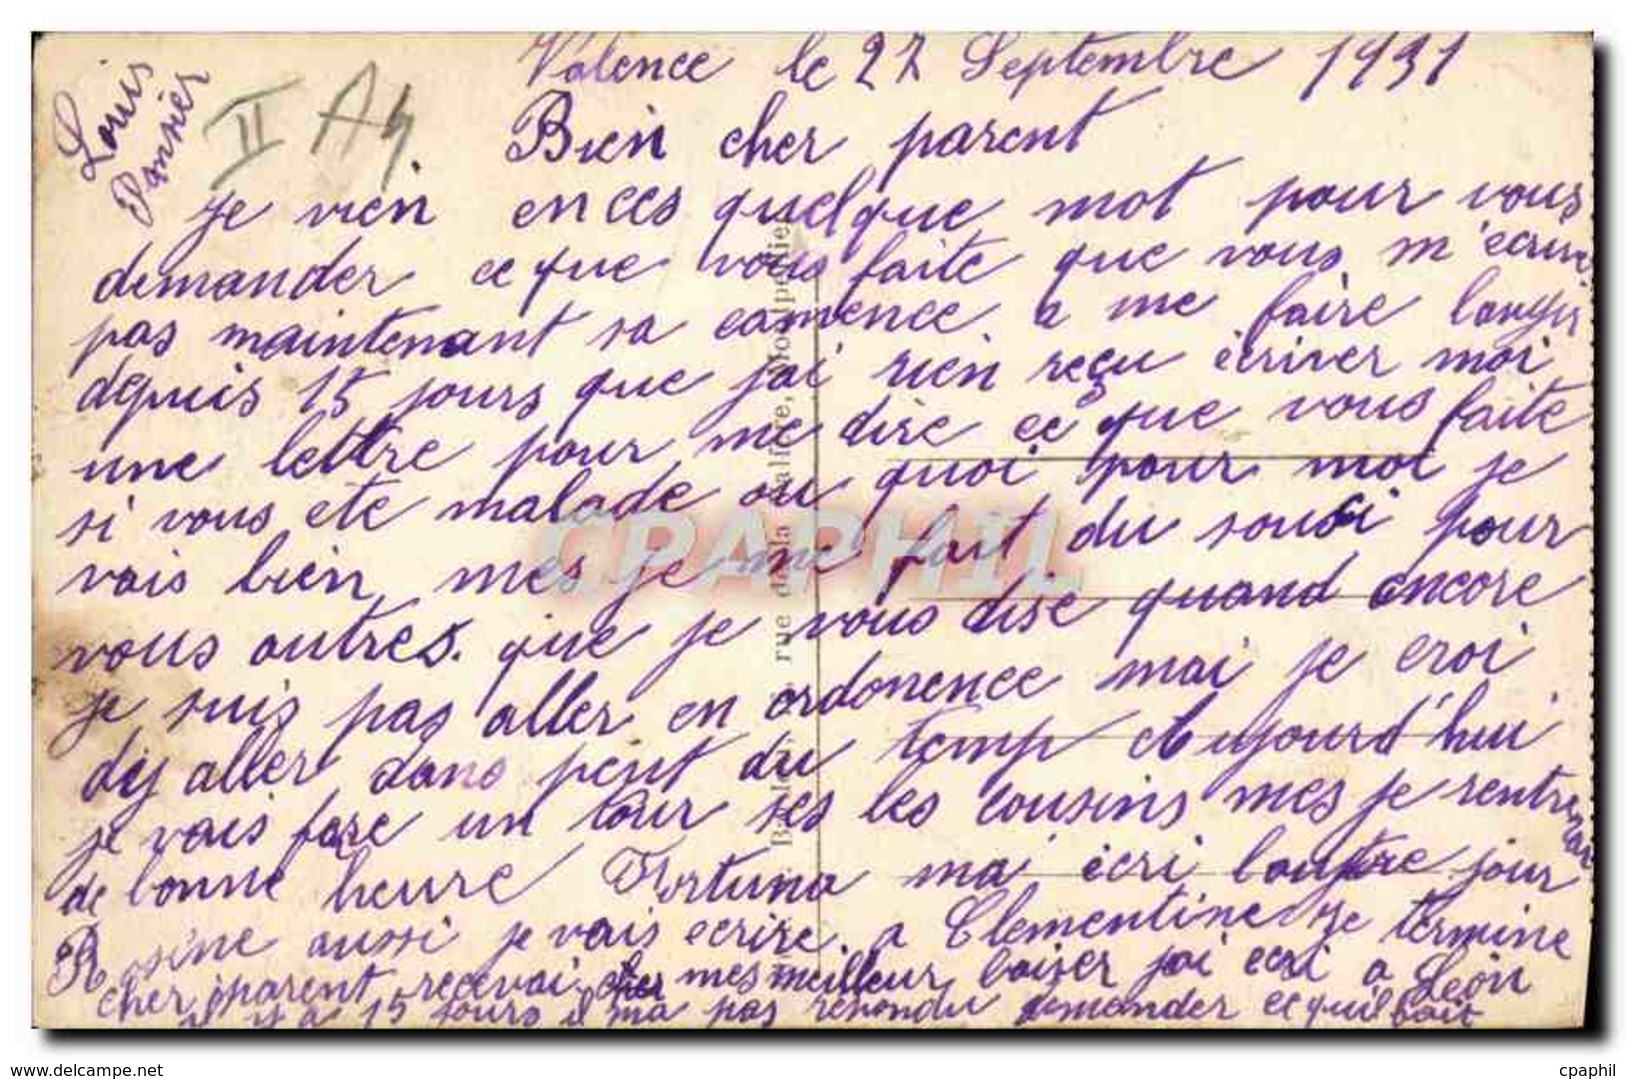 Valence le 27 Septembre 1931
Louis
Panier
II A4
Bien cher parent
je vien en ces quelque mot pour vous
demander ce que vous faite que vous m'ecrive
pas maintenant sa comence a me faire langir
depuis 15 jours que j'ai rien reçu écriver moi
une lettre pour me dire ce que vous faite
si vous ete malade ou quoi pour moi je
vais bien mes je me fait du souci pour
vous autres. que je vous dise quand encore
je suis pas aller en ordonence mai je croi
d'y aller dans peut du temp Aujourd'hui
je vais fare un tour ses les cousins mes je rentre
de bonne heure Fortuna ma écri l'autre jour
Rosine aussi je vais ecrire a Clementine je termine
cher parent recevai mes meilleur baiser j'ai ecri a Léon
il y a 15 jours il ma pas repondu demander ce qu'il fait
rue de la Valfère, Montpellier
CPAPHIL
www.delcampe.net
cpaphil